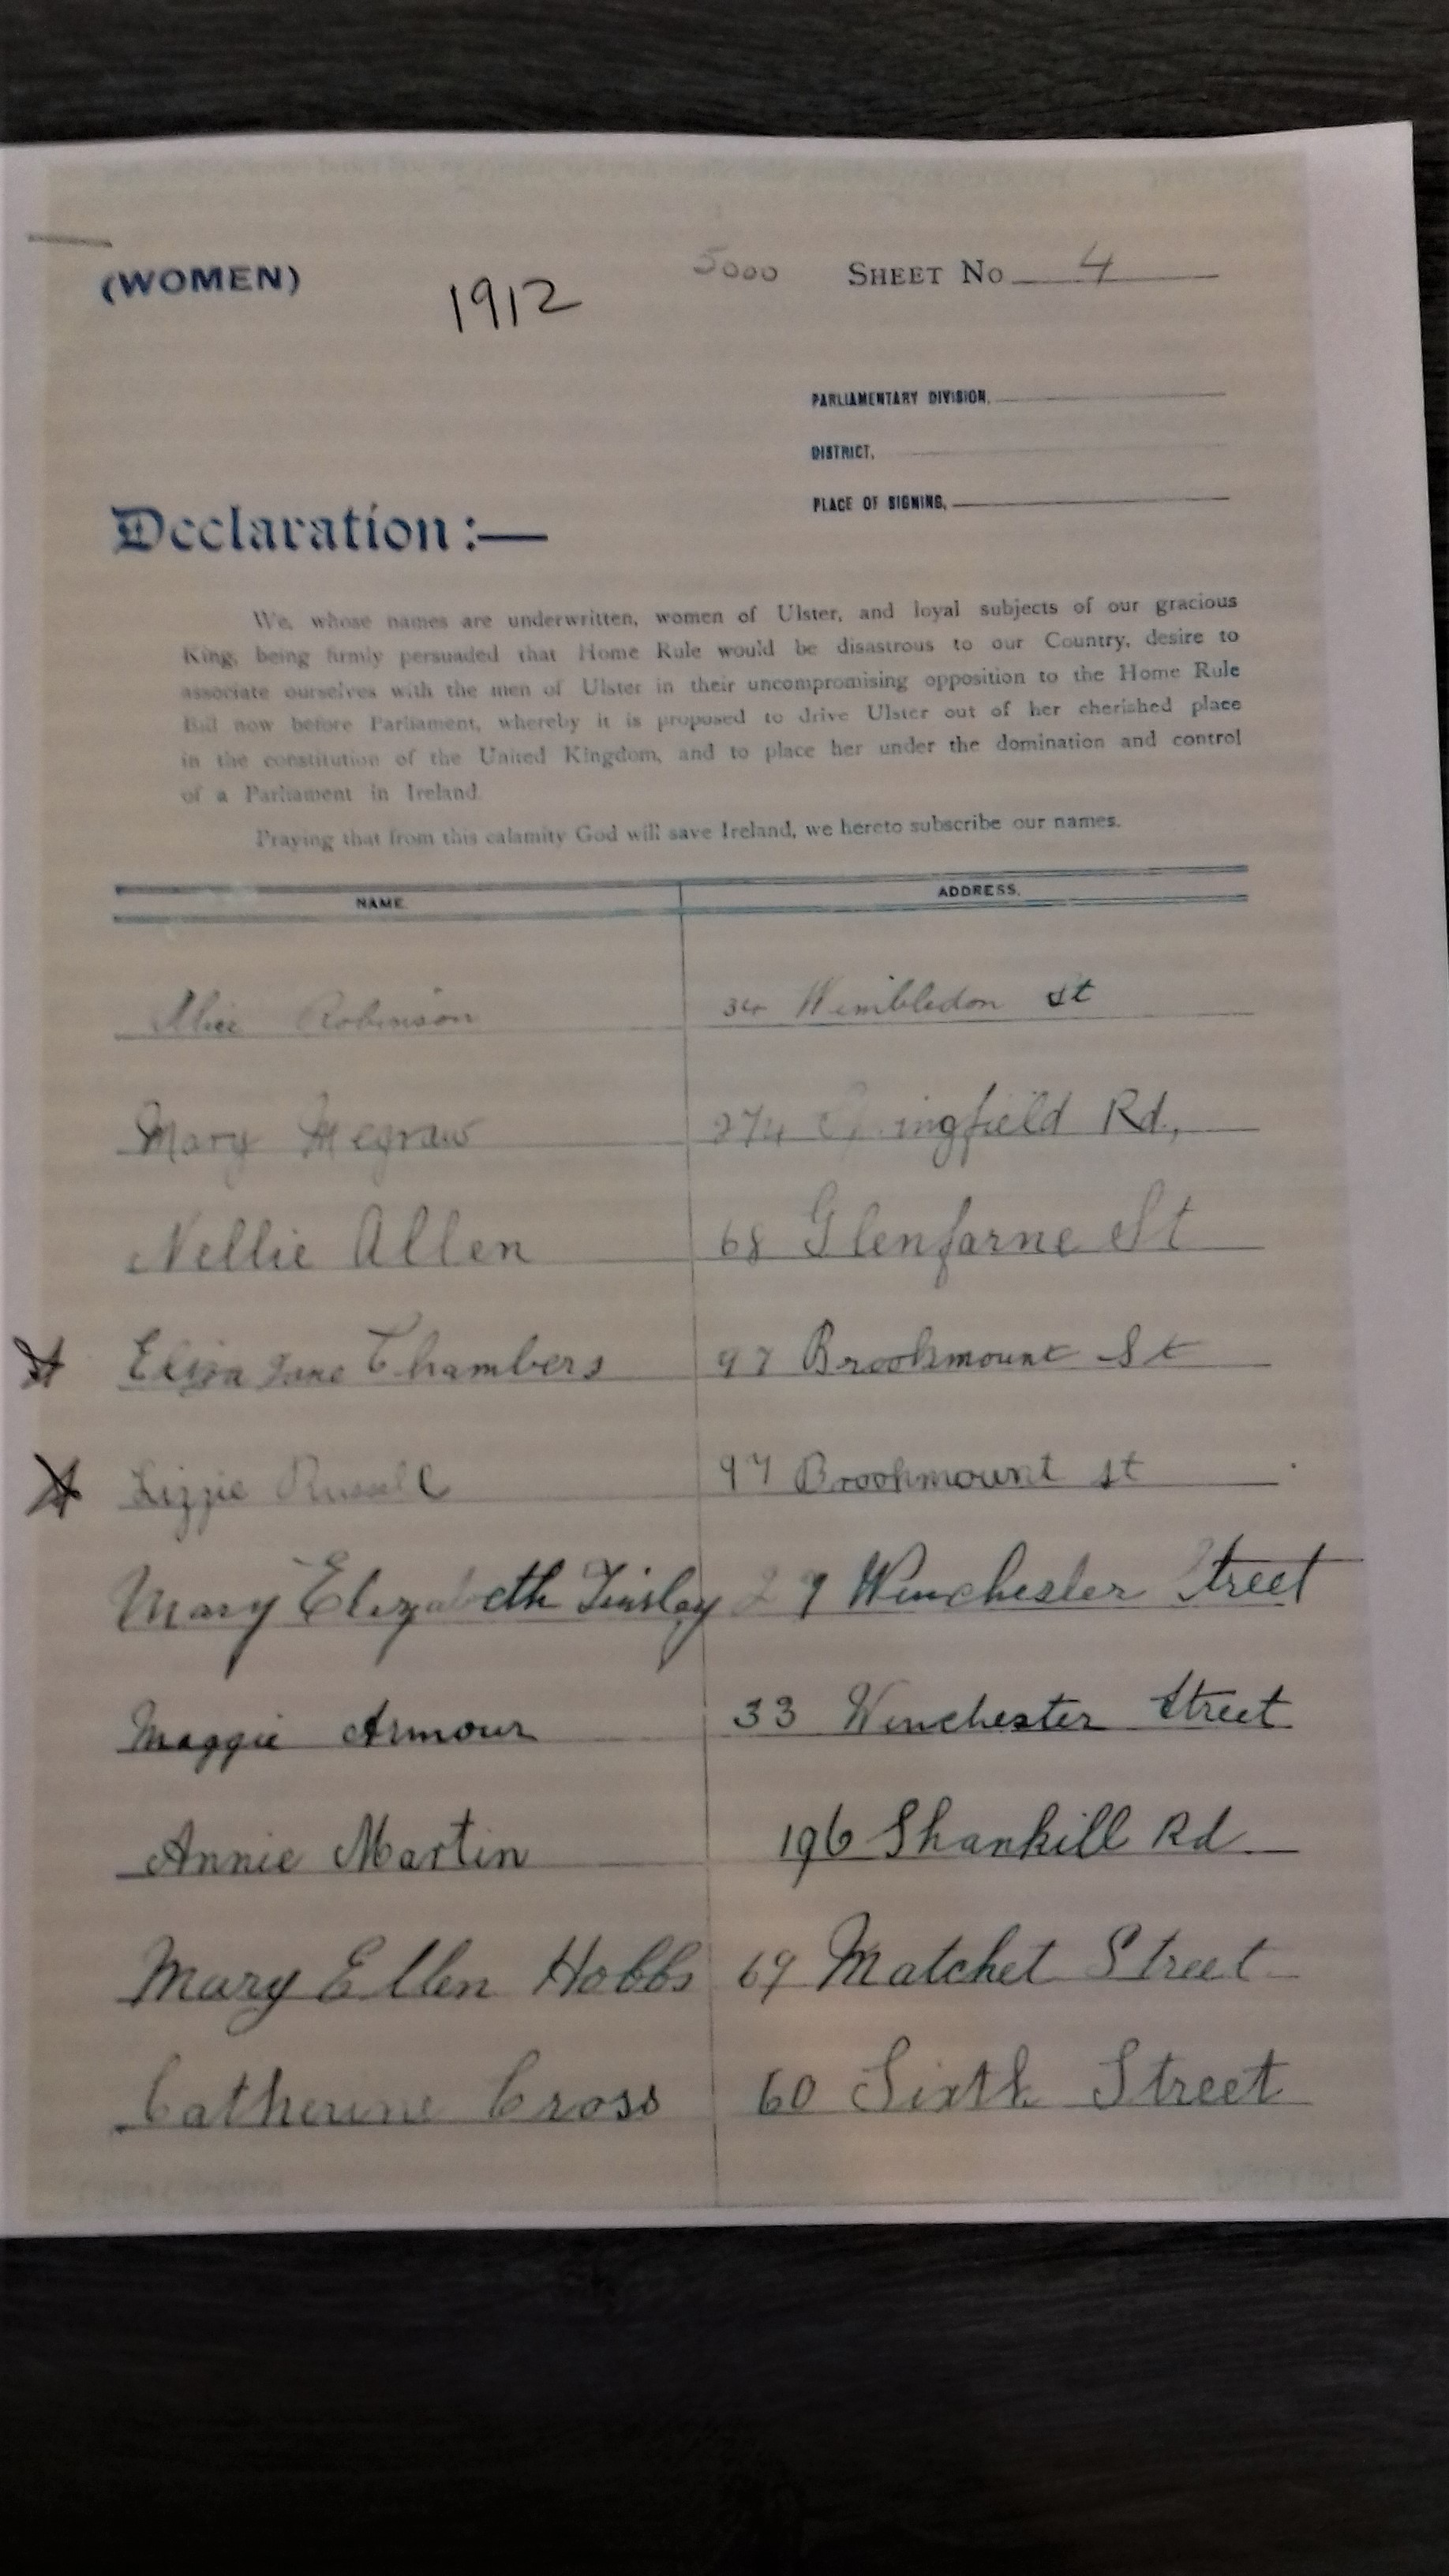 (WOMEN)
1912
5000 SHEET No 4
PARLIAMENTARY DIVISION,
DISTRICT,
PLACE OF SIGNING,
Declaration:—
We, whose names are underwritten, women of Ulster, and loyal subjects of our gracious
King, being firmly persuaded that Home Rule would be disastrous to our Country, desire to
associate ourselves with the men of Ulster in their uncompromising opposition to the Home Rule
Bill now before Parliament, whereby it is proposed to drive Ulster out of her cherished place
in the constitution of the United Kingdom, and to place her under the domination and control
of a Parliament in Ireland.
Praying that from this calamity God will save Ireland, we hereto subscribe our names.
NAME. ADDRESS.
Alice Robinson 34 Wimbledon St
Mary Megraw 274 Springfield Rd,
Nellie Allen 68 Glenfarne St
Eliza Jane Chambers 97 Brookmount St
Lizzie Russell 97 Brookmount st
Mary Elizabeth Tinsley 29 Winchester Street
Maggie Armour 33 Winchester Street
Annie Martin 196 Shankill Rd
Mary Ellen Hobbs 69 Matchet Street
Catherine Cross 60 Sixth Street